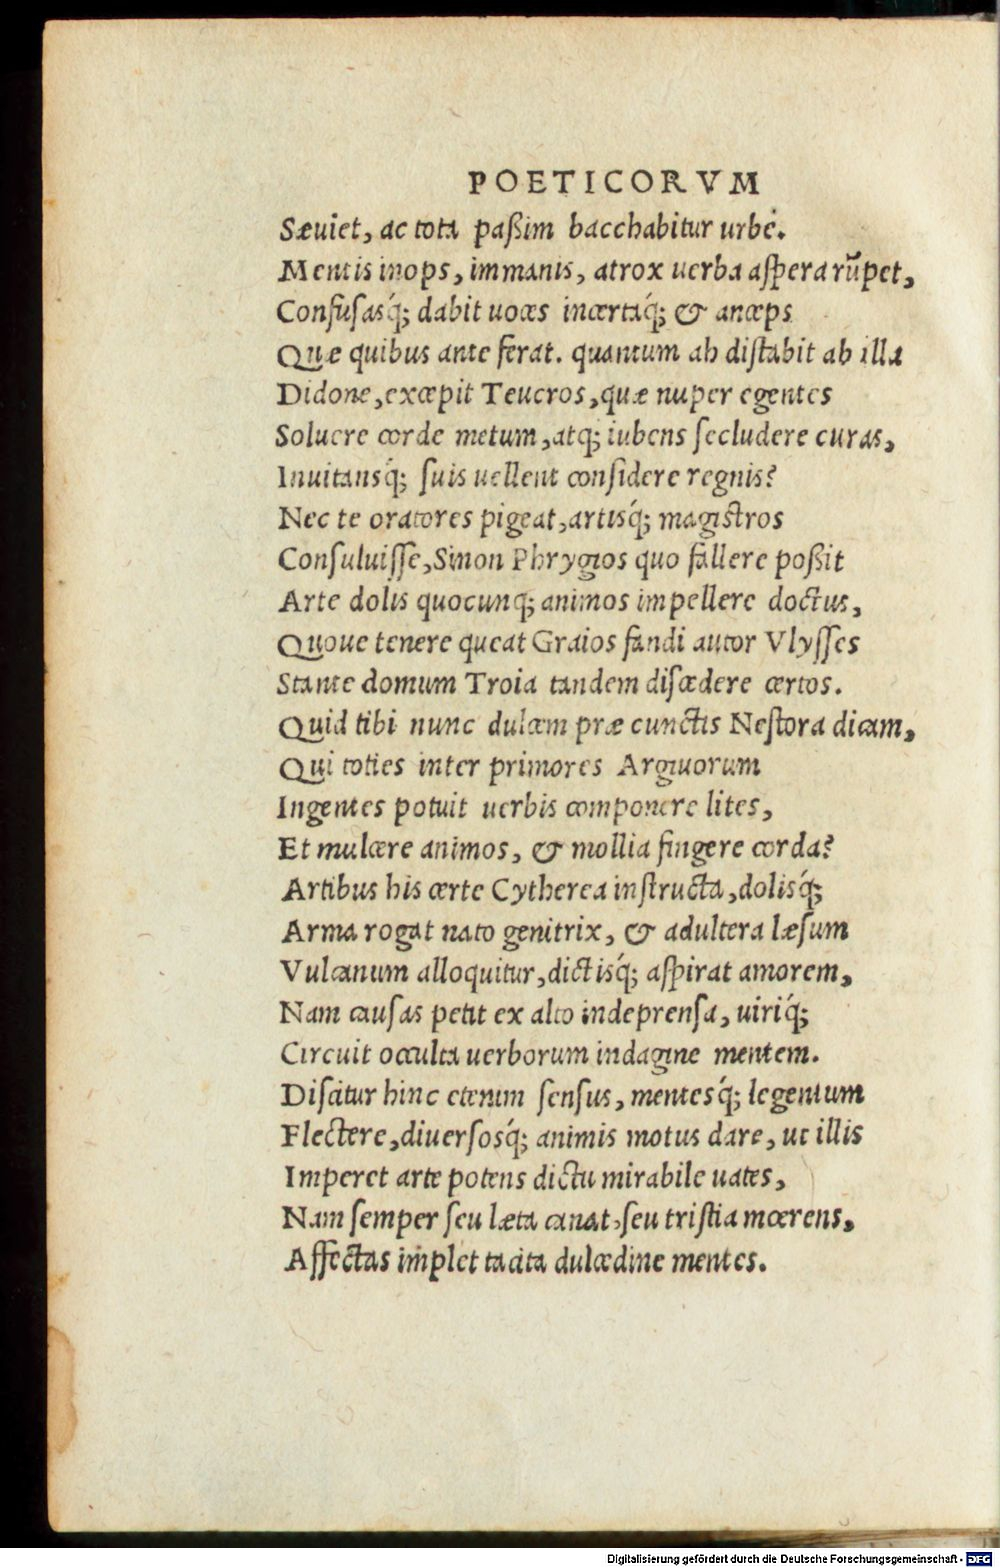 POETICORVM
Sæuiet, ac tota paßim bacchabitur urbe.
Mentis inops, immanis, atrox uerba aſpera rũpet,
Confuſasq́; dabit uoces incertaq́; & anceps
Quæ quibus ante ferat. quantum ab diſtabit ab illa
Didone, excepit Teucros, quæ nuper egentes
Soluere corde metum, atq; iubens ſecludere curas,
Inuitansq́; ſuis uellent conſidere regnis?
Nec te oratores pigeat, artisq́; magiſtros
Conſuluiſſe, Sinon Phrygios quo fallere poßit
Arte dolis quocunq; animos impellere doctus,
Quoue tenere queat Graios fandi autor Vlyſſes
Stante domum Troia tandem diſcedere certos.
Quid tibi nunc dulcem præ cunctis Neſtora dicam,
Qui toties inter primores Argiuorum
Ingentes potuit uerbis componere lites,
Et mulcere animos, & mollia fingere corda?
Artibus his certe Cytherea inſtructa, dolisq́;
Arma rogat nato genitrix, & adultera læſum
Vulcanum alloquitur, dictisq́; aſpirat amorem,
Nam cauſas petit ex alto indeprenſa, uiriq́;
Circuit occulta uerborum indagine mentem.
Diſcitur hinc etenim ſenſus, mentesq́; legentum
Flectere, diuerſosq́; animis motus dare, ut illis
Imperet arte potens dictu mirabile uates,
Nam ſemper ſeu læta canat, ſeu triſtia mœrens,
Affectas implet tacita dulcedine mentes.
Digitalisierung gefördert durch die Deutsche Forschungsgemeinschaft - DFG